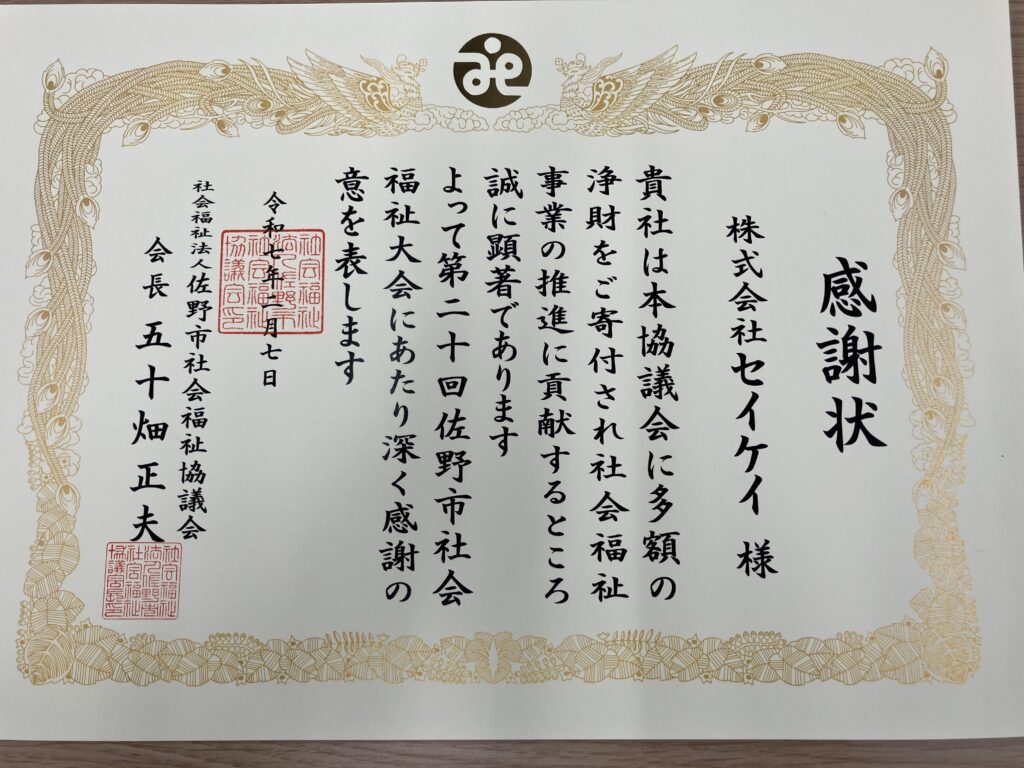 感謝状
株式会社セイケイ 様
貴社は本協議会に多額の
浄財をご寄付され社会福祉
事業の推進に貢献するところ
誠に顕著であります
よって第二十回佐野市社会
福祉大会にあたり深く感謝の
意を表します
令和七年二月七日
社会福祉法人佐野市社会福祉協議会
会長 五十畑正夫